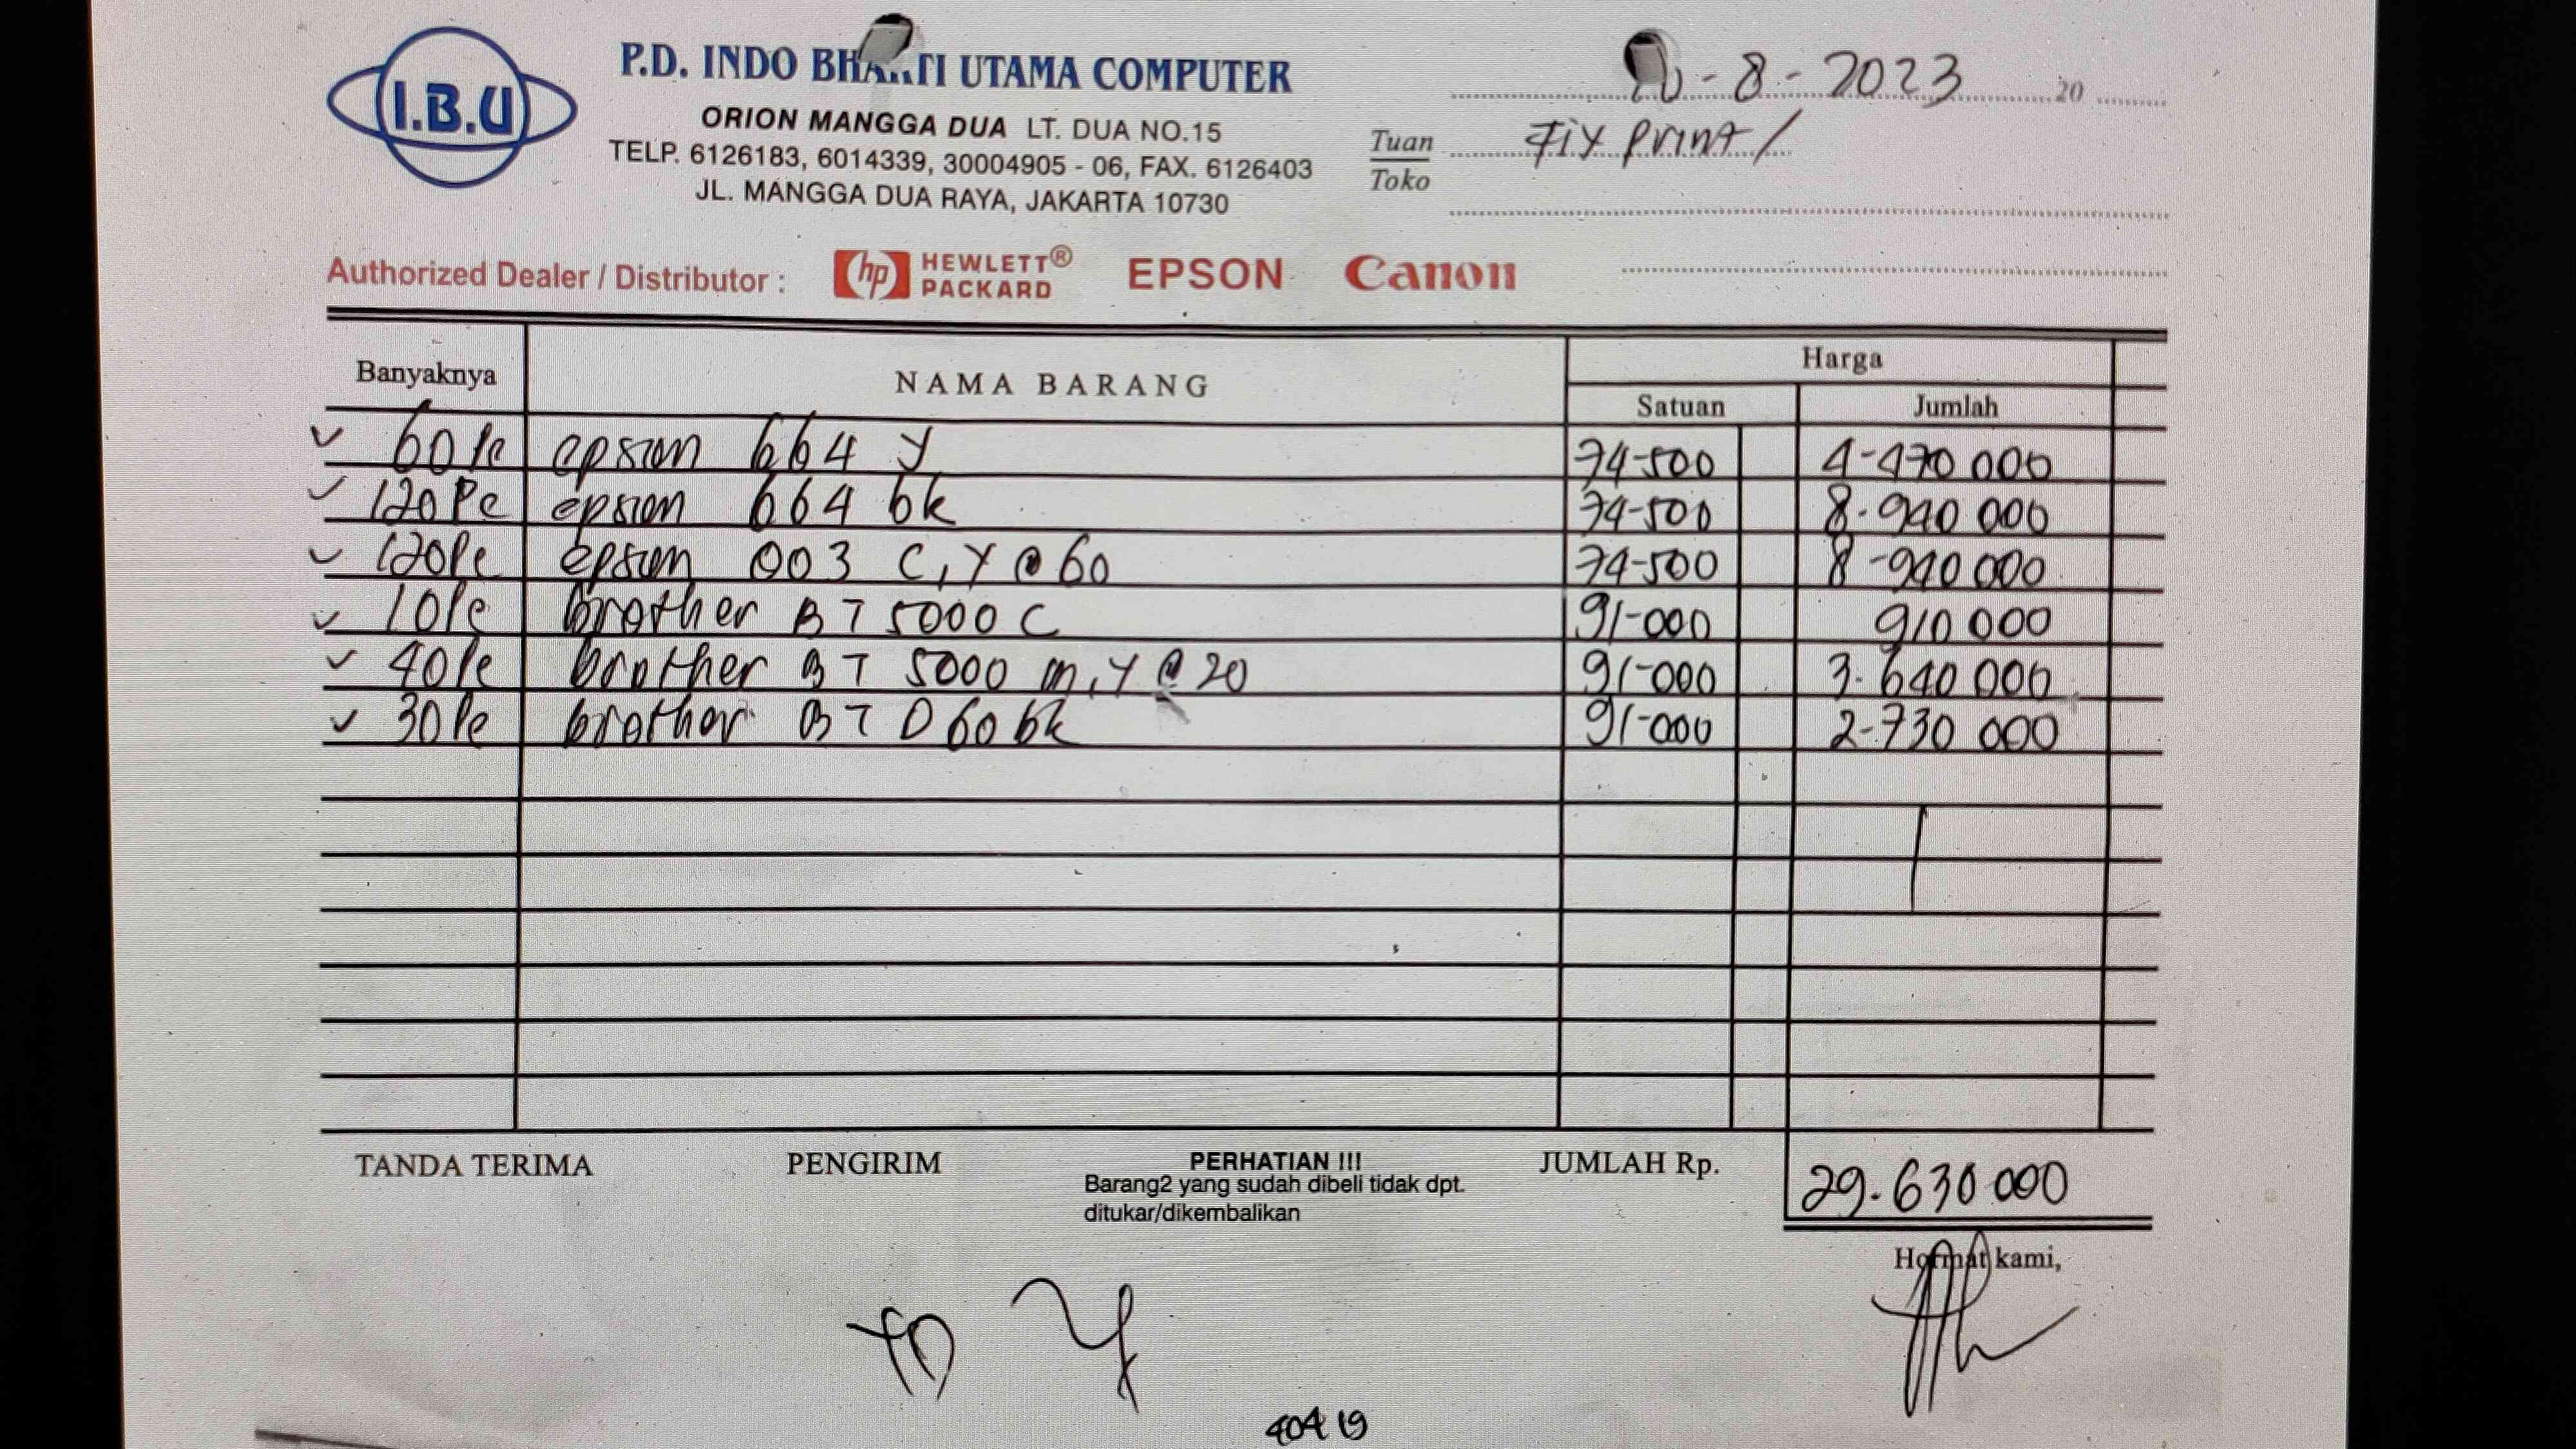 I.B.U
P.D. INDO BHAKTI UTAMA COMPUTER
ORION MANGGA DUA LT. DUA NO.15
TELP. 6126183, 6014339, 30004905 - 06, FAX. 6126403
JL. MANGGA DUA RAYA, JAKARTA 10730
-8-2023 20
Tuan Fix print/
Toko
Authorized Dealer / Distributor : hp HEWLETT® PACKARD EPSON Canon
Banyaknya NAMA BARANG Harga
Satuan Jumlah
60 Pc epson 664 y 74-500 4-470 000
120 Pc epson 664 bk 74-500 8.940 000
120 Pc epson 003 C, Y @ 60 74-500 8-940 000
10 Pc brother BT 5000 C 91-000 910 000
40 Pc brother BT 5000 m, Y @ 20 91-000 3.640 000
30 Pc brother BT D60 bk 91-000 2-730 000
TANDA TERIMA PENGIRIM PERHATIAN !!! JUMLAH Rp. 29.630 000
Barang2 yang sudah dibeli tidak dpt.
ditukar/dikembalikan
Hormat kami,